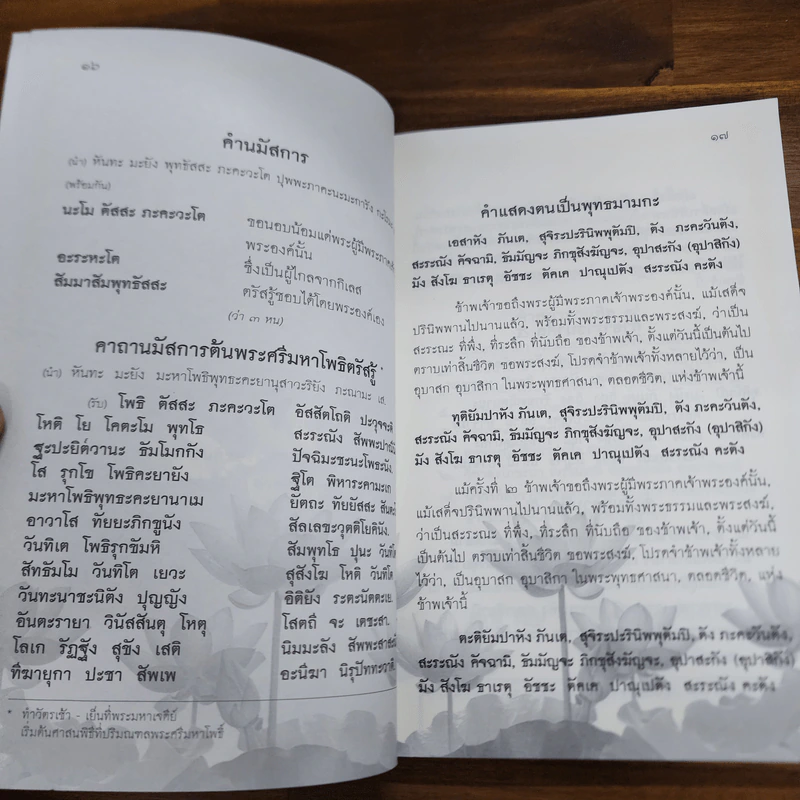 ๑๖
คำนมัสการ
(นำ) หันทะ มะยัง พุทธัสสะ ภะคะวะโต ปุพพะภาคะนะมะการัง
(พร้อมกัน)
นะโม ตัสสะ ภะคะวะโต ขอนอบน้อมแด่พระผู้มีพระภาค
พระองค์นั้น
อะระหะโต ซึ่งเป็นผู้ไกลจากกิเลส
สัมมาสัมพุทธัสสะ ตรัสรู้ชอบได้โดยพระองค์เอง
(ว่า ๓ หน)
คาถานมัสการต้นพระศรีมหาโพธิตรัสรู้ *
(นำ) หันทะ มะยัง มะหาโพธิพุทธะคะยานุสาวะริยัง ภะณามะ เส.
(รับ) โพธิ ตัสสะ ภะคะวะโต อัสสัตโถติ ปะวุจจะติ
โหติ โย โคตะโม พุทโธ สะระณัง สัพพะปาณินัง
ฐะปะยิต๎วานะ ธัมโมกกัง ปัจฉิมะชะนะโพธะนัง
โส รุกโข โพธิคะยายัง ฐิโต พิหาระคามะเก
มะหาโพธิพุทธะคะยานาเม ยัตถะ ทัยยัสสะ
อาวาโส ทัยยะภิกขูนัง สัลเลขะวุตติโยคินัง.
วันทิเต โพธิรุกขัมหิ สัมพุทโธ ปุนะ วันทิโต
สีทธัมโม วันทิโต เยวะ สุสังโฆ โหติ วันทิโต
วันทะนาชะนิตัง ปุญญัง อิติยัง ระตะนัตตะเย
อันตะรายา วินัสสันตุ โหตุ โสตถี จะ เตชะสา.
โลเก รัฏฐัง สุขัง เสติ นิมมะลัง สัพพะสาสะนัง
ทีฆายุกา ปะชา สัพเพ อะนีฆา นิรุปัททะวาติ.
* ทำวัตรเช้า - เย็นที่พระมหาเจดีย์
เริ่มต้นศาสนพิธีที่ปริมณฑลพระศรีมหาโพธิ์
๑๗
คำแสดงตนเป็นพุทธมามกะ
เอสาหัง ภันเต, สุจิระปะรินิพพุตัมปิ, ตัง ภะคะวันตัง,
สะระณัง คัจฉามิ, ธัมมัญจะ, ภิกขุสังฆัญจะ, อุปาสะกัง (อุปาสิกัง)
มัง สังโฆ ธาเรตุ อัชชะ ตัคเค ปาณุเปตัง สะระณัง คะตัง
ข้าพเจ้าขอถึงพระผู้มีพระภาคเจ้าพระองค์นั้น, แม้เสด็จ
ปรินิพพานไปนานแล้ว, พร้อมทั้งพระธรรมและพระสงฆ์, ว่าเป็น
สะระณะ ที่พึ่ง, ที่ระลึก ที่นับถือ ของข้าพเจ้า, ตั้งแต่วันนี้เป็นต้นไป
ตราบเท่าสิ้นชีวิต ขอพระสงฆ์, โปรดจำข้าพเจ้าทั้งหลายไว้ว่า, เป็น
อุบาสก อุบาสิกา ในพระพุทธศาสนา, ตลอดชีวิต, แห่งข้าพเจ้านี้
ทุติยัมปาหัง ภันเต, สุจิระปะรินิพพุตัมปิ, ตัง ภะคะวันตัง,
สะระณัง คัจฉามิ, ธัมมัญจะ ภิกขุสังฆัญจะ, อุปาสะกัง (อุปาสิกัง)
มัง สังโฆ ธาเรตุ อัชชะ ตัคเค ปาณุเปตัง สะระณัง คะตัง
แม้ครั้งที่ ๒ ข้าพเจ้าขอถึงพระผู้มีพระภาคเจ้าพระองค์นั้น,
แม้เสด็จปรินิพพานไปนานแล้ว, พร้อมทั้งพระธรรมและพระสงฆ์,
ว่าเป็นสะระณะ ที่พึ่ง, ที่ระลึก ที่นับถือ ของข้าพเจ้า, ตั้งแต่วันนี้
เป็นต้นไป ตราบเท่าสิ้นชีวิต ขอพระสงฆ์, โปรดจำข้าพเจ้าทั้งหลาย
ไว้ว่า, เป็นอุบาสก อุบาสิกา ในพระพุทธศาสนา, ตลอดชีวิต, แห่ง
ข้าพเจ้านี้
ตะติยัมปาหัง ภันเต, สุจิระปะรินิพพุตัมปิ, ตัง ภะคะวันตัง,
สะระณัง คัจฉามิ, ธัมมัญจะ ภิกขุสังฆัญจะ, อุปาสะกัง (อุปาสิกัง)
มัง สังโฆ ธาเรตุ อัชชะ ตัคเค ปาณุเปตัง สะระณัง คะตัง